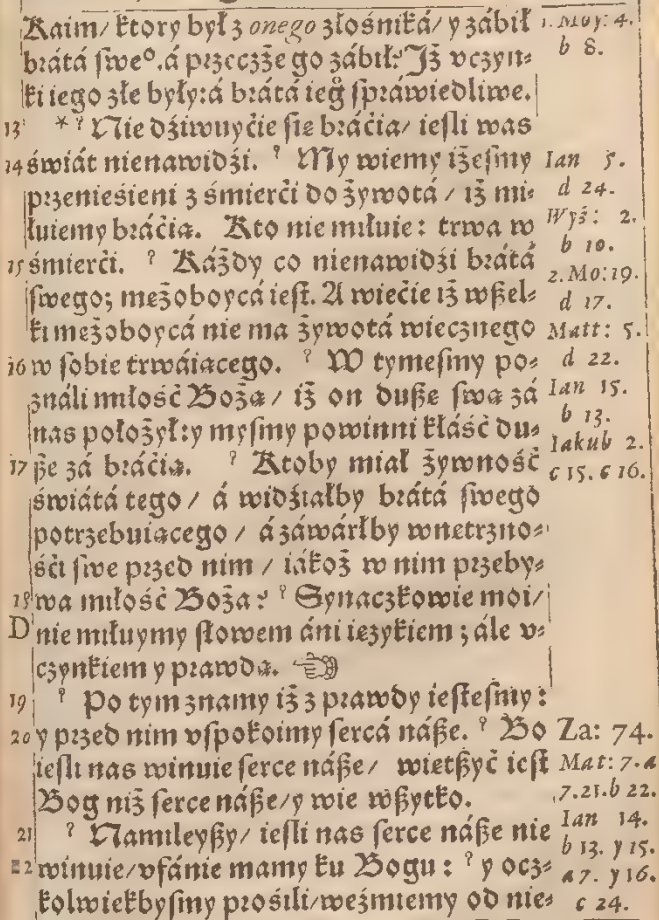 Kaim/ ktory był z onego złośniká/ y zábił
brátá swe°. á przeczże go zábił? Iż vczyn-
ki iego złe były: á brátá ieg° spráwiedliwe.
13 * ? Nie dźiwuyćie sie bráćia/ iesli was
14 świát nienawidźi. ? My wiemy iżesmy
przenieśieni z śmierći do żywotá / iż mi-
łuiemy bráćią. Kto nie miłuie: trwa w
15 śmierći. ? Káżdy co nienawidźi brátá
swego; mężoboycá iest. A wiećie iż wßel-
ki mężoboycá nie ma żywotá wiecznego
16 w sobie trwáiącego. ? W tymesmy po-
ználi miłość Bożą/ iż on dußę swą zá
nas położył: y mysmy powinni kłáść du-
17 ße zá bráćią. ? Ktoby miał żywność
świátá tego / á widźiałby brátá swego
potrzebuiącego / á záwárłby wnetrzno-
śći swe przed nim / iákoż w nim przeby-
18 wa miłość Boża? ? Synaczkowie moi/
D nie miłuymy słowem áni ięzykiem; ále v-
czynkiem y prawdą. ☜
19 ? Po tym znamy iż z prawdy iestesmy:
20 y przed nim vspokoimy sercá náße. ? Bo
iesli nas winuie serce náße/ więtßyć iest
Bog niż serce náße/ y wie wßytko.
21 ? Namileyßy/ iesli nas serce náße nie
22 winuie/ vfánie mamy ku Bogu: ? y ocz-
kolwiekbysmy prośili/ weźmiemy od nie-
1. Moy: 4.
b 8.
Ian 5.
d 24.
Wyż: 2.
b 10.
2. Mo: 19.
d 17.
Matt: 5.
d 22.
Ian 15.
b 13.
Iakub 2.
c 15. c 16.
Za: 74.
Mat: 7. a
7. 21. b 22.
Ian 14.
b 13. y 15.
a 7. y 16.
c 24.